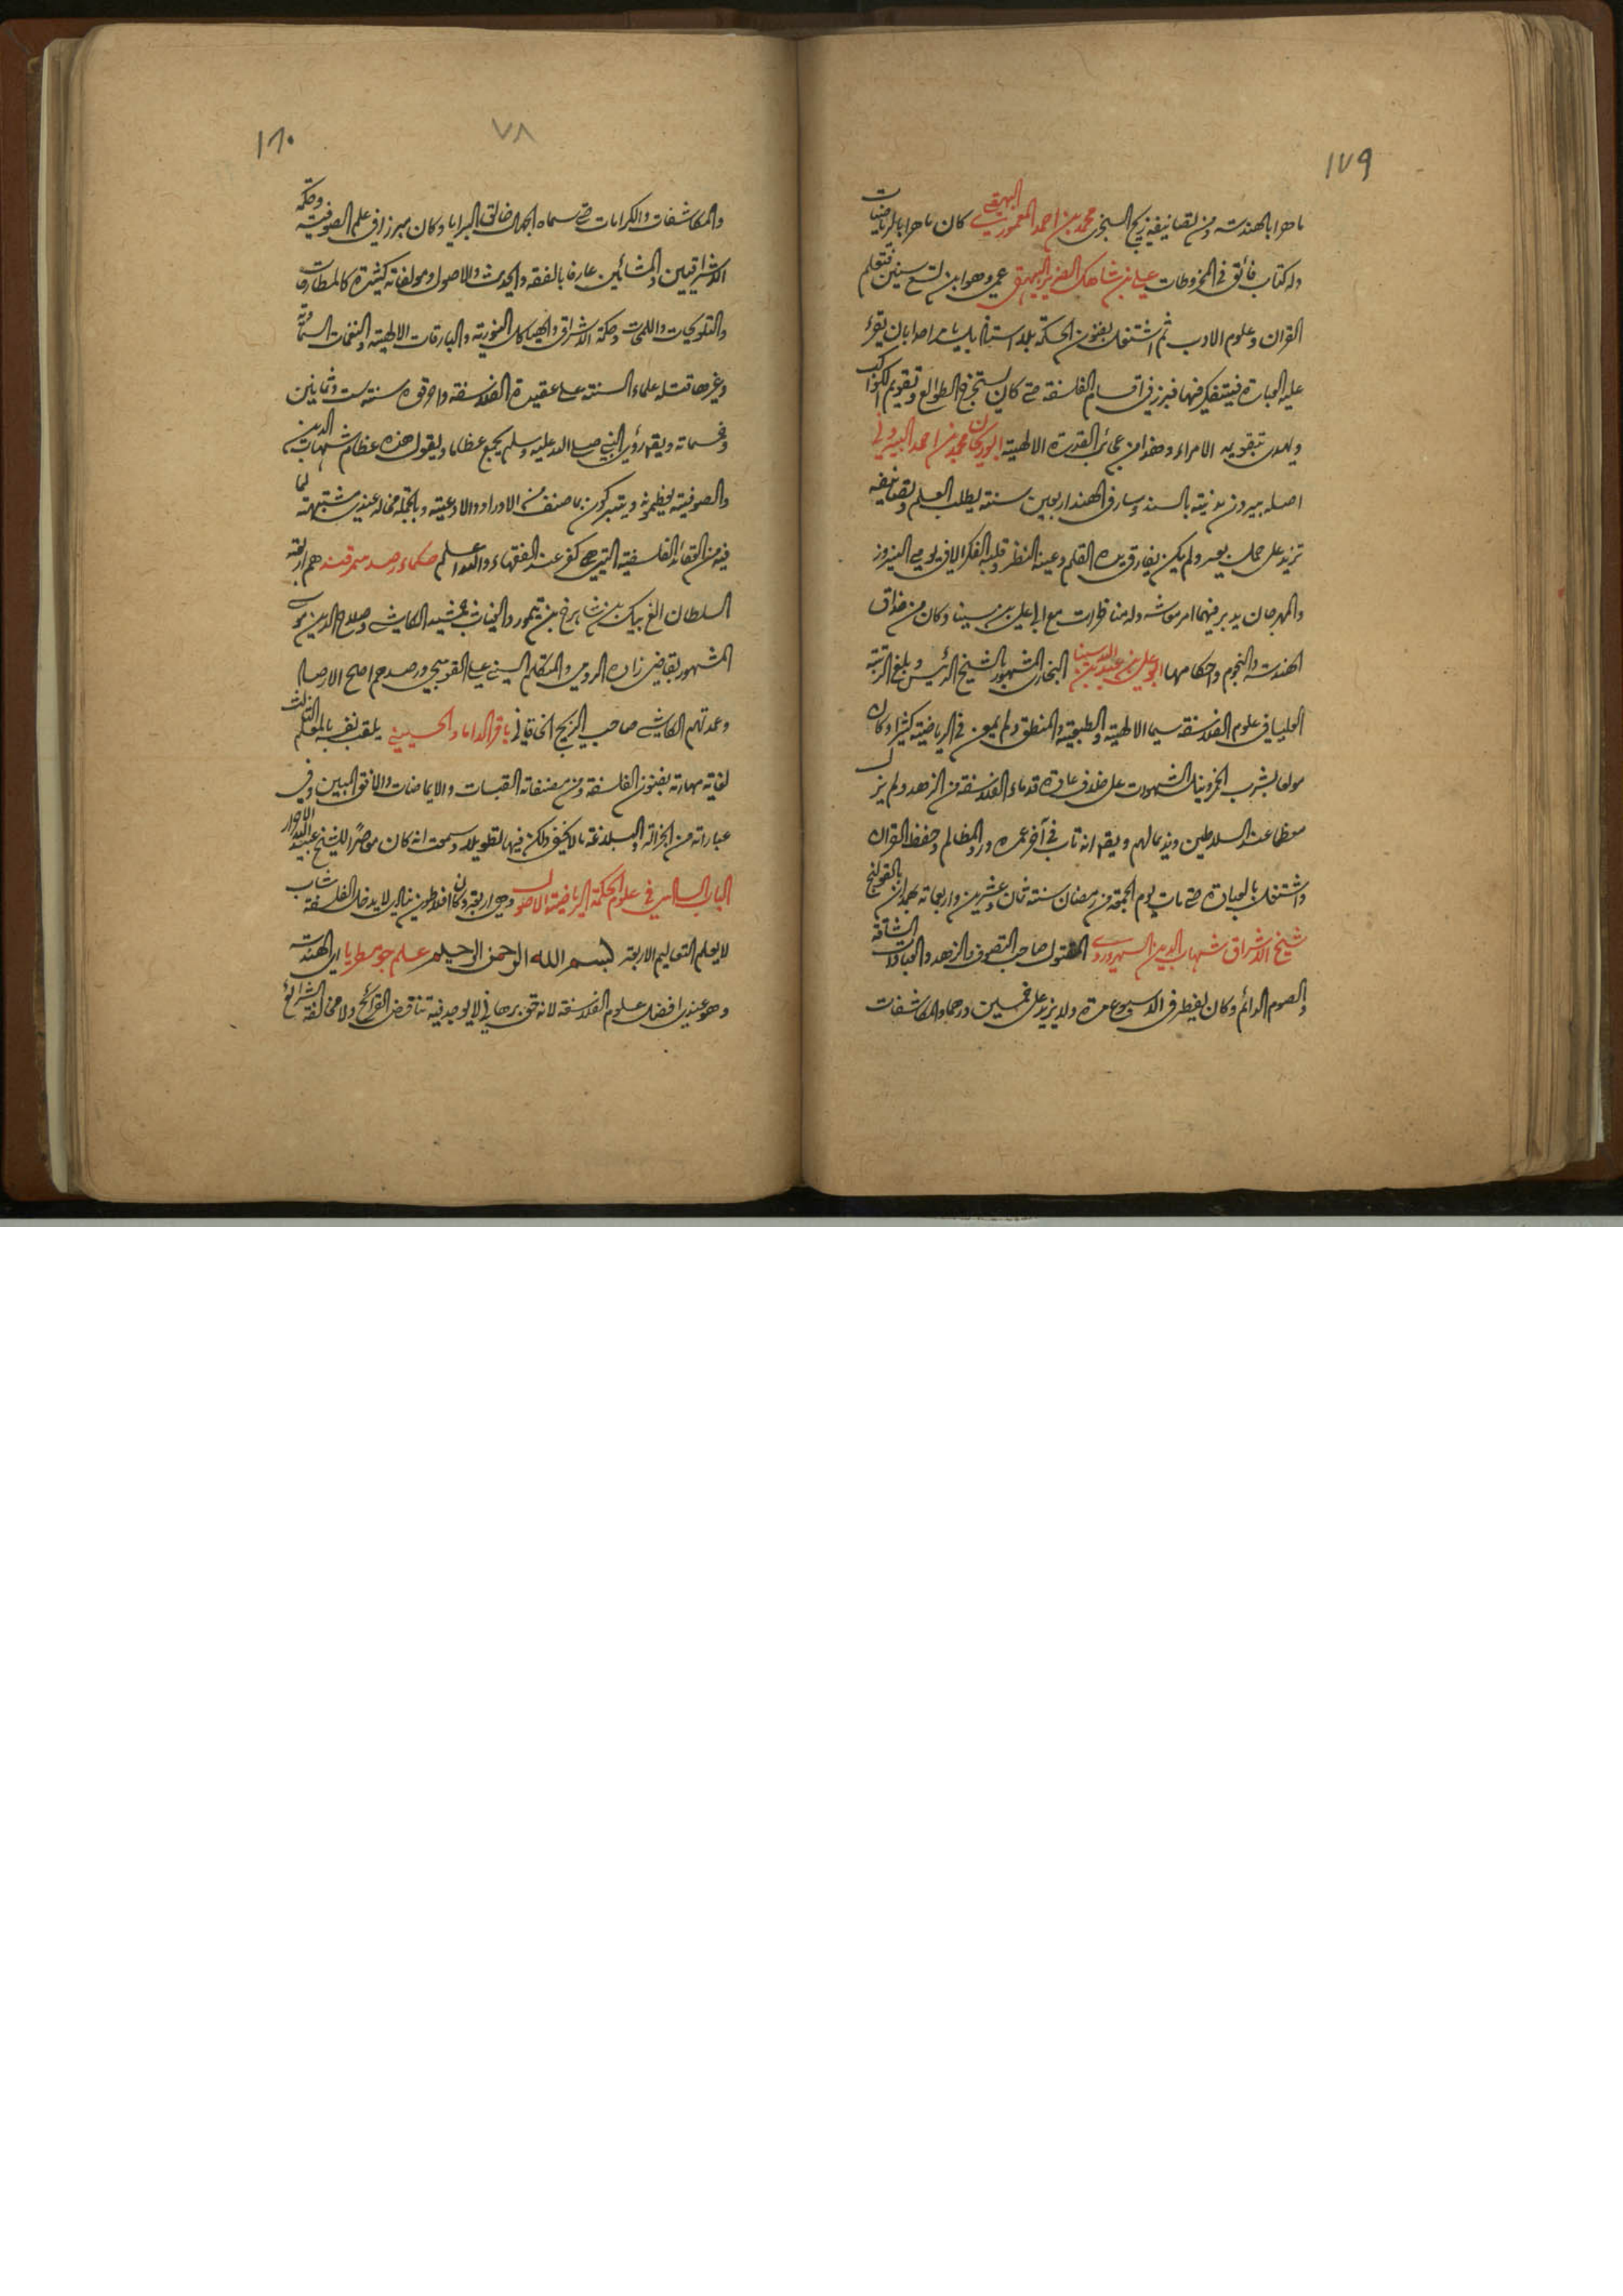 ١٧٩
ماهرا بالهندسة ومن تصانيفه زيج السنجري محمد بن احمد المعموري البيهقي كان ماهرا بالرياضيات
وله كتاب فائق في المخروطات علي بن شاهك الضرير البيهقي عمي وهو ابن تسع سنين فتعلم
القران وعلوم الادب ثم اشتغل بفنون الحكمة بلا استاذ بل يامر احدا بان يقرء
عليه العبارة فيتفكر فيها فبرز في اقسام الفلسفة حتى كان يستخرج الطوالع وتقويم الكواكب
ويهدى تقويمه الامراء وهذا من عجائب القدرة الالهية ابو ريحان محمد بن احمد البيروني
اصله بيرون مدينة بالسند وسار في الهند اربعين سنة يطلب العلم وتصانيفه
تزيد على حمل بعير ولم يكن يفارق يده القلم وعينه النظر وقلبه الفكر الا في يومي النيروز
والمهرجان يدبر فيهما امر معاشه وله مناظرات مع ابي علي بن سينا وكان من حذاق
الهندسة والنجوم واحكامها ابو علي بن عبد الله بن سينا البخاري المشهور بالشيخ الرئيس وبلغ الرتبة
العليا في علوم الفلاسفة سيما الالهية والطبيعية والمنطق ولم يمعن في الرياضية كثيرا وكان
مولعا بشرب الخمر ونيل الشهوات على خلاف عادة قدماء الفلاسفة من الزهد ولم يزل
معظما عند السلاطين ونديما لهم ويقم انه تاب في آخر عمره ورد المظالم وحفظ القران
واشتغل بالعبادة حتى مات يوم الجمعة من رمضان سنة ثمان وعشرين واربعمائة بهمدان بالقولنج
شيخ الاشراق شهاب الدين السهروردي المقتول صاحب التصوف والزهد والعبادات الشاقة
والصوم الدائم وكان يفطر في الاسبوع مرة ولا يزيد على خمسين درهما والمكاشفات
١٨٠
٧٨
والمكاشفات والكرامات حتى سماه الجهال خالق البرايا وكان مبرزا في علم الصوفية وحكمة
الاشراقيين والمشائين عارفا بالفقه والحديث والاصول ومولفاته كثيرة كالمطارحات
والتلويحات واللمحات وحكمة الاشراق والهياكل النورية والبارقات الالهية والنغمات السماوية
وغيرها قتله علماء السنة على عقيدة الفلاسفة واحرقوه سنة ست وثمانين
وخمسمائة ويقم رؤى النبي صلى الله عليه وسلم يجمع عظاما ويقول هذه عظام شهاب الدين
والصوفية يعظمونه ويتبركون بما صنف من الاوراد والادعية وبالجملة فحاله عندي مشتبهة لما
فيه من العقائد الفلسفية التي هي كفر عند الفقهاء والله اعلم حكماء رصد سمرقند هم اربعة
السلطان الغ بيك بن شاهرخ بن تيمور والغياث جمشيد الكاشي وصلاح الدين موسى
المشهور بقاضي زاده الرومي والمتكلم السني علي القوشجي ورصدهم اصلح الارصاد
وعمدتهم الكاشي صاحب الزيج الخاقاني باقر الداماد الحسيني يلقب نفسه بالمعلم الثالث
لغاية مهارته بفنون الفلسفة ومن مصنفاته القبسات والايماضات والافق المبين وفي
عباراته من الجزالة والبلاغة ما لا يخفى ولكن فيها تطويلا وسمعت انه كان معاصرا للشيخ عبيد الله الاحرار
الباب السادس في علوم الحكمة الرياضية الاصول وهي اربعة وكان افلاطون ينادي لا يدخل الفلسفة شاب
لا يعلم التعاليم الاربعة بسم الله الرحمن الرحيم علم جومطريا اي الهندسة
وهو عندي افضل علوم الفلاسفة لانه حق برهاني لا يوجد فيه تناقض القرائح ولا مخالفة الشرائع